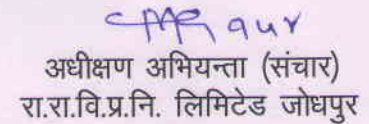 अधीक्षण अभियन्ता (संचार)
रा.रा.वि.प्र.नि. लिमिटेड जोधपुर